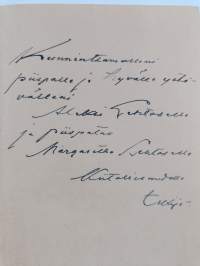 Kunnioittamalleni
piispalle ja hyvälle ystä-
välleni
Aleksi Lehtoselle
ja piispatar
Margareetta Lehtoselle
tekijä